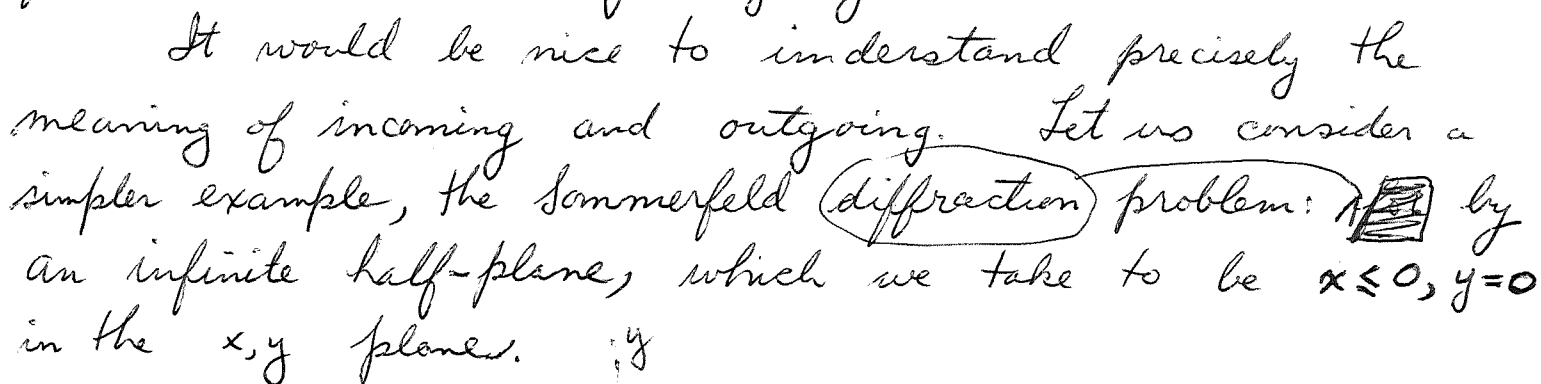 It would be nice to understand precisely the
meaning of incoming and outgoing. Let us consider a
simpler example, the Sommerfeld diffraction problem: by
an infinite half-plane, which we take to be x ≤ 0, y = 0
in the x, y plane. y